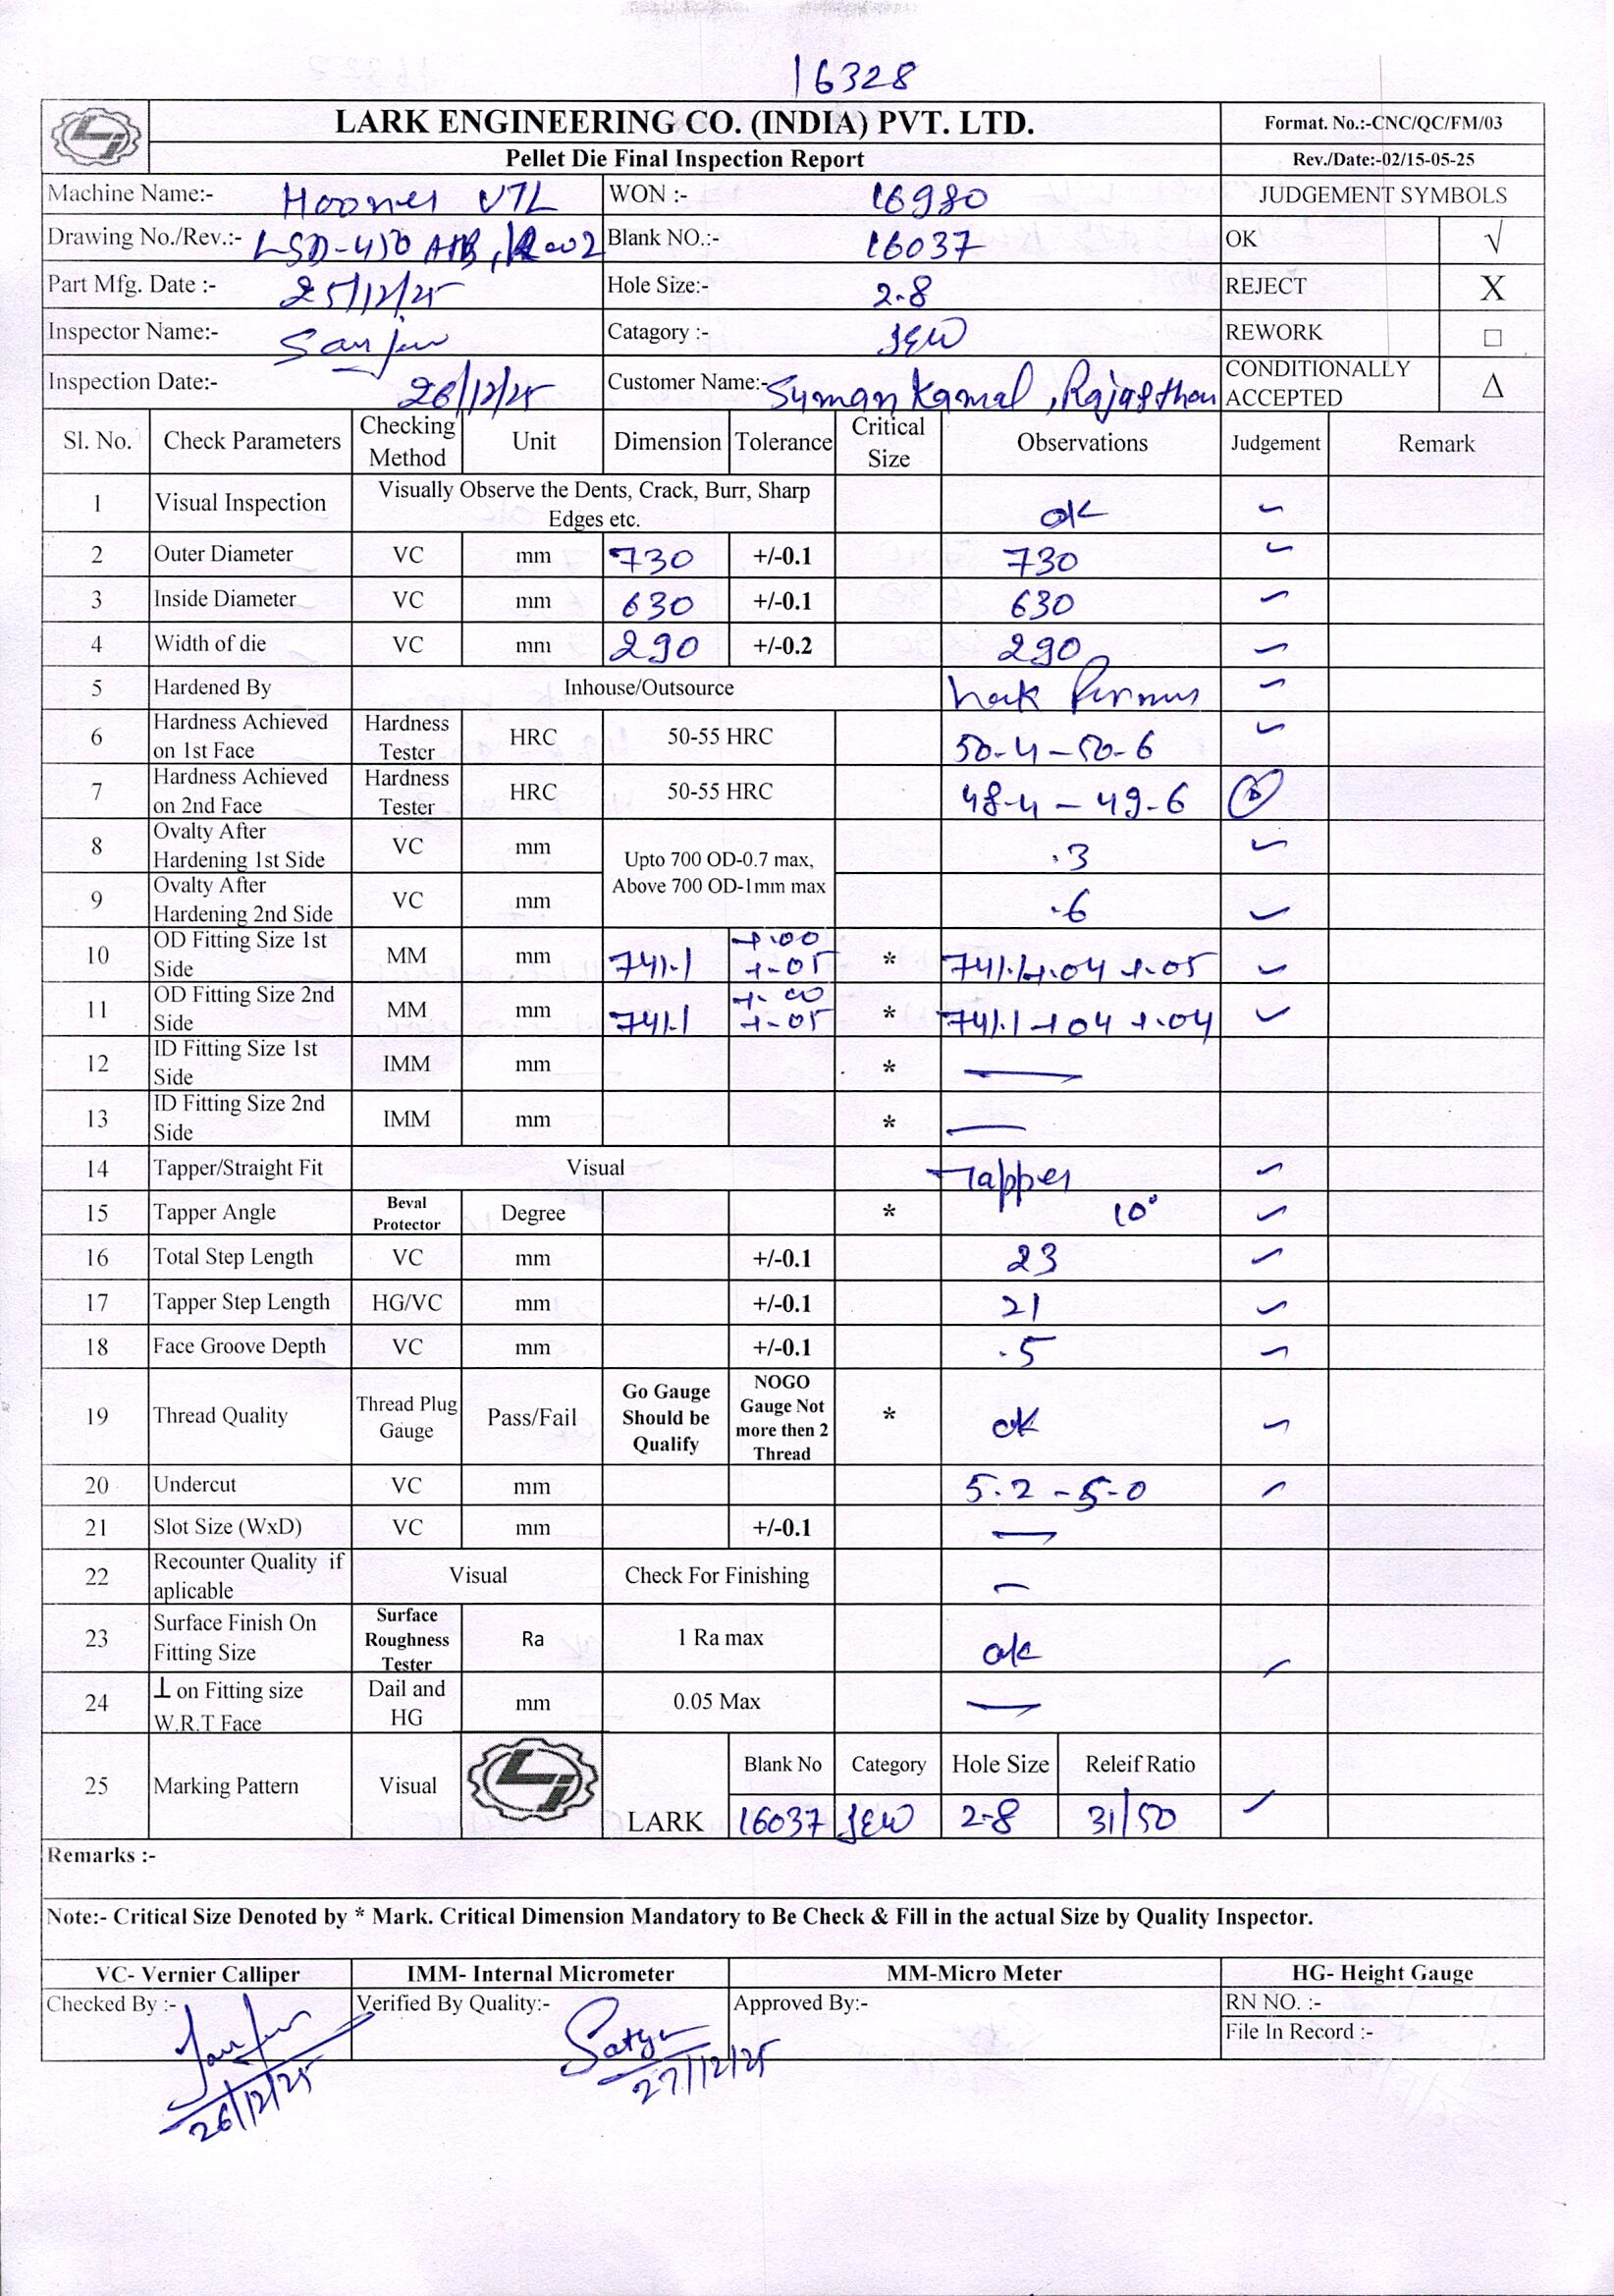 16328
LARK ENGINEERING CO. (INDIA) PVT. LTD.
Format. No.:-CNC/QC/FM/03
Pellet Die Final Inspection Report
Rev./Date:-02/15-05-25
Machine Name:- VTL WON :- 16980 JUDGEMENT SYMBOLS
Drawing No./Rev.:- LSD-450 Blank NO.:- 16037 OK √
Part Mfg. Date :- 25/12/25 Hole Size:- 2.8 REJECT X
Inspector Name:- Catagory :- REWORK □
Inspection Date:- 26/12/25 Customer Name:- Suman Kamal, Rajasthan CONDITIONALLY ACCEPTED Δ
Sl. No. Check Parameters Checking Method Unit Dimension Tolerance Critical Size Observations Judgement Remark
1 Visual Inspection Visually Observe the Dents, Crack, Burr, Sharp Edges etc. ok
2 Outer Diameter VC mm 730 +/-0.1 730
3 Inside Diameter VC mm 630 +/-0.1 630
4 Width of die VC mm 290 +/-0.2 290
5 Hardened By Inhouse/Outsource
6 Hardness Achieved on 1st Face Hardness Tester HRC 50-55 HRC 50-4 - 50-6
7 Hardness Achieved on 2nd Face Hardness Tester HRC 50-55 HRC 48-4 - 49-6
8 Ovalty After Hardening 1st Side VC mm Upto 700 OD-0.7 max, Above 700 OD-1mm max .3
9 Ovalty After Hardening 2nd Side VC mm .6
10 OD Fitting Size 1st Side MM mm 741.1 +.00 +.05 * 741.1+.04 +.05
11 OD Fitting Size 2nd Side MM mm 741.1 +.00 +.05 * 741.1 +04 +.04
12 ID Fitting Size 1st Side IMM mm *
13 ID Fitting Size 2nd Side IMM mm *
14 Tapper/Straight Fit Visual Tapper
15 Tapper Angle Beval Protector Degree * 10°
16 Total Step Length VC mm +/-0.1 23
17 Tapper Step Length HG/VC mm +/-0.1 21
18 Face Groove Depth VC mm +/-0.1 .5
19 Thread Quality Thread Plug Gauge Pass/Fail Go Gauge Should be Qualify NOGO Gauge Not more then 2 Thread * ok
20 Undercut VC mm 5.2 - 5-0
21 Slot Size (WxD) VC mm +/-0.1
22 Recounter Quality if aplicable Visual Check For Finishing
23 Surface Finish On Fitting Size Surface Roughness Tester Ra 1 Ra max ok
24 ⊥ on Fitting size W.R.T Face Dail and HG mm 0.05 Max
25 Marking Pattern Visual LARK Blank No Category Hole Size Releif Ratio
16037 2-8 31/50
Remarks :-
Note:- Critical Size Denoted by * Mark. Critical Dimension Mandatory to Be Check & Fill in the actual Size by Quality Inspector.
VC- Vernier Calliper IMM- Internal Micrometer MM-Micro Meter HG- Height Gauge
Checked By :- Verified By Quality:- Approved By:- RN NO. :-
File In Record :-
26/12/25 27/12/25